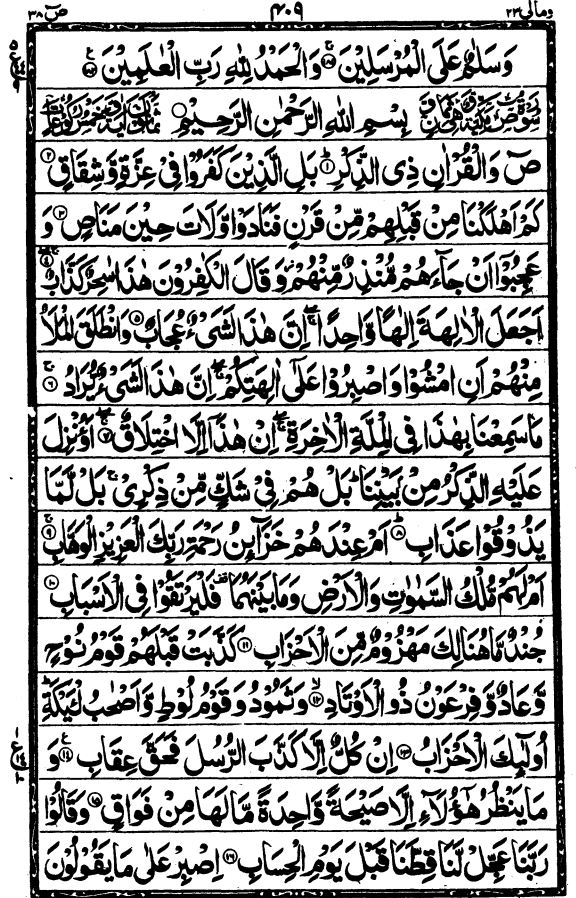 ومالی ٢٣ ۴٠٩ صٓ ٣٨
وَسَلٰمٌ عَلَى الْمُرْسَلِيْنَ ۚ﴿١٨١﴾ وَالْحَمْدُ لِلّٰهِ رَبِّ الْعٰلَمِيْنَ ﴿١٨٢﴾
بِسْمِ اللّٰهِ الرَّحْمٰنِ الرَّحِيْمِ
صٓ وَالْقُرْاٰنِ ذِى الذِّكْرِ ؕ﴿١﴾ بَلِ الَّذِيْنَ كَفَرُوْا فِىْ عِزَّةٍ وَّشِقَاقٍ ﴿٢﴾
كَمْ اَهْلَكْنَا مِنْ قَبْلِهِمْ مِّنْ قَرْنٍ فَنَادَوْا وَّلَاتَ حِيْنَ مَنَاصٍ ﴿٣﴾ وَ
عَجِبُوْۤا اَنْ جَآءَهُمْ مُّنْذِرٌ مِّنْهُمْ ؗ وَقَالَ الْكٰفِرُوْنَ هٰذَا سٰحِرٌ كَذَّابٌ ﴿٤﴾
اَجَعَلَ الْاٰلِهَةَ اِلٰهًا وَّاحِدًا ۚۖ اِنَّ هٰذَا لَشَىْءٌ عُجَابٌ ﴿٥﴾ وَانْطَلَقَ الْمَلَاُ
مِنْهُمْ اَنِ امْشُوْا وَاصْبِرُوْا عَلٰٓى اٰلِهَتِكُمْ ۖۚ اِنَّ هٰذَا لَشَىْءٌ يُّرَادُ ۚ﴿٦﴾
مَا سَمِعْنَا بِهٰذَا فِى الْمِلَّةِ الْاٰخِرَةِ ۖۚ اِنْ هٰذَاۤ اِلَّا اخْتِلَاقٌ ۖۚ﴿٧﴾ اَؤُنْزِلَ
عَلَيْهِ الذِّكْرُ مِنْۢ بَيْنِنَا ؕ بَلْ هُمْ فِىْ شَكٍّ مِّنْ ذِكْرِىْ ۚ بَلْ لَّمَّا
يَذُوْقُوْا عَذَابِ ؕ﴿٨﴾ اَمْ عِنْدَهُمْ خَزَآئِنُ رَحْمَةِ رَبِّكَ الْعَزِيْزِ الْوَهَّابِ ۚ﴿٩﴾
اَمْ لَهُمْ مُّلْكُ السَّمٰوٰتِ وَالْاَرْضِ وَمَا بَيْنَهُمَا ۫ فَلْيَرْتَقُوْا فِى الْاَسْبَابِ ﴿١٠﴾
جُنْدٌ مَّا هُنَالِكَ مَهْزُوْمٌ مِّنَ الْاَحْزَابِ ﴿١١﴾ كَذَّبَتْ قَبْلَهُمْ قَوْمُ نُوْحٍ
وَّعَادٌ وَّفِرْعَوْنُ ذُو الْاَوْتَادِ ۙ﴿١٢﴾ وَثَمُوْدُ وَقَوْمُ لُوْطٍ وَّاَصْحٰبُ لْئَيْكَةِ ؕ
اُولٰٓئِكَ الْاَحْزَابُ ﴿١٣﴾ اِنْ كُلٌّ اِلَّا كَذَّبَ الرُّسُلَ فَحَقَّ عِقَابِ ﴿١٤﴾ وَ
مَا يَنْظُرُ هٰٓؤُلَآءِ اِلَّا صَيْحَةً وَّاحِدَةً مَّا لَهَا مِنْ فَوَاقٍ ﴿١٥﴾ وَقَالُوْا
رَبَّنَا عَجِّلْ لَّنَا قِطَّنَا قَبْلَ يَوْمِ الْحِسَابِ ﴿١٦﴾ اِصْبِرْ عَلٰى مَا يَقُوْلُوْنَ